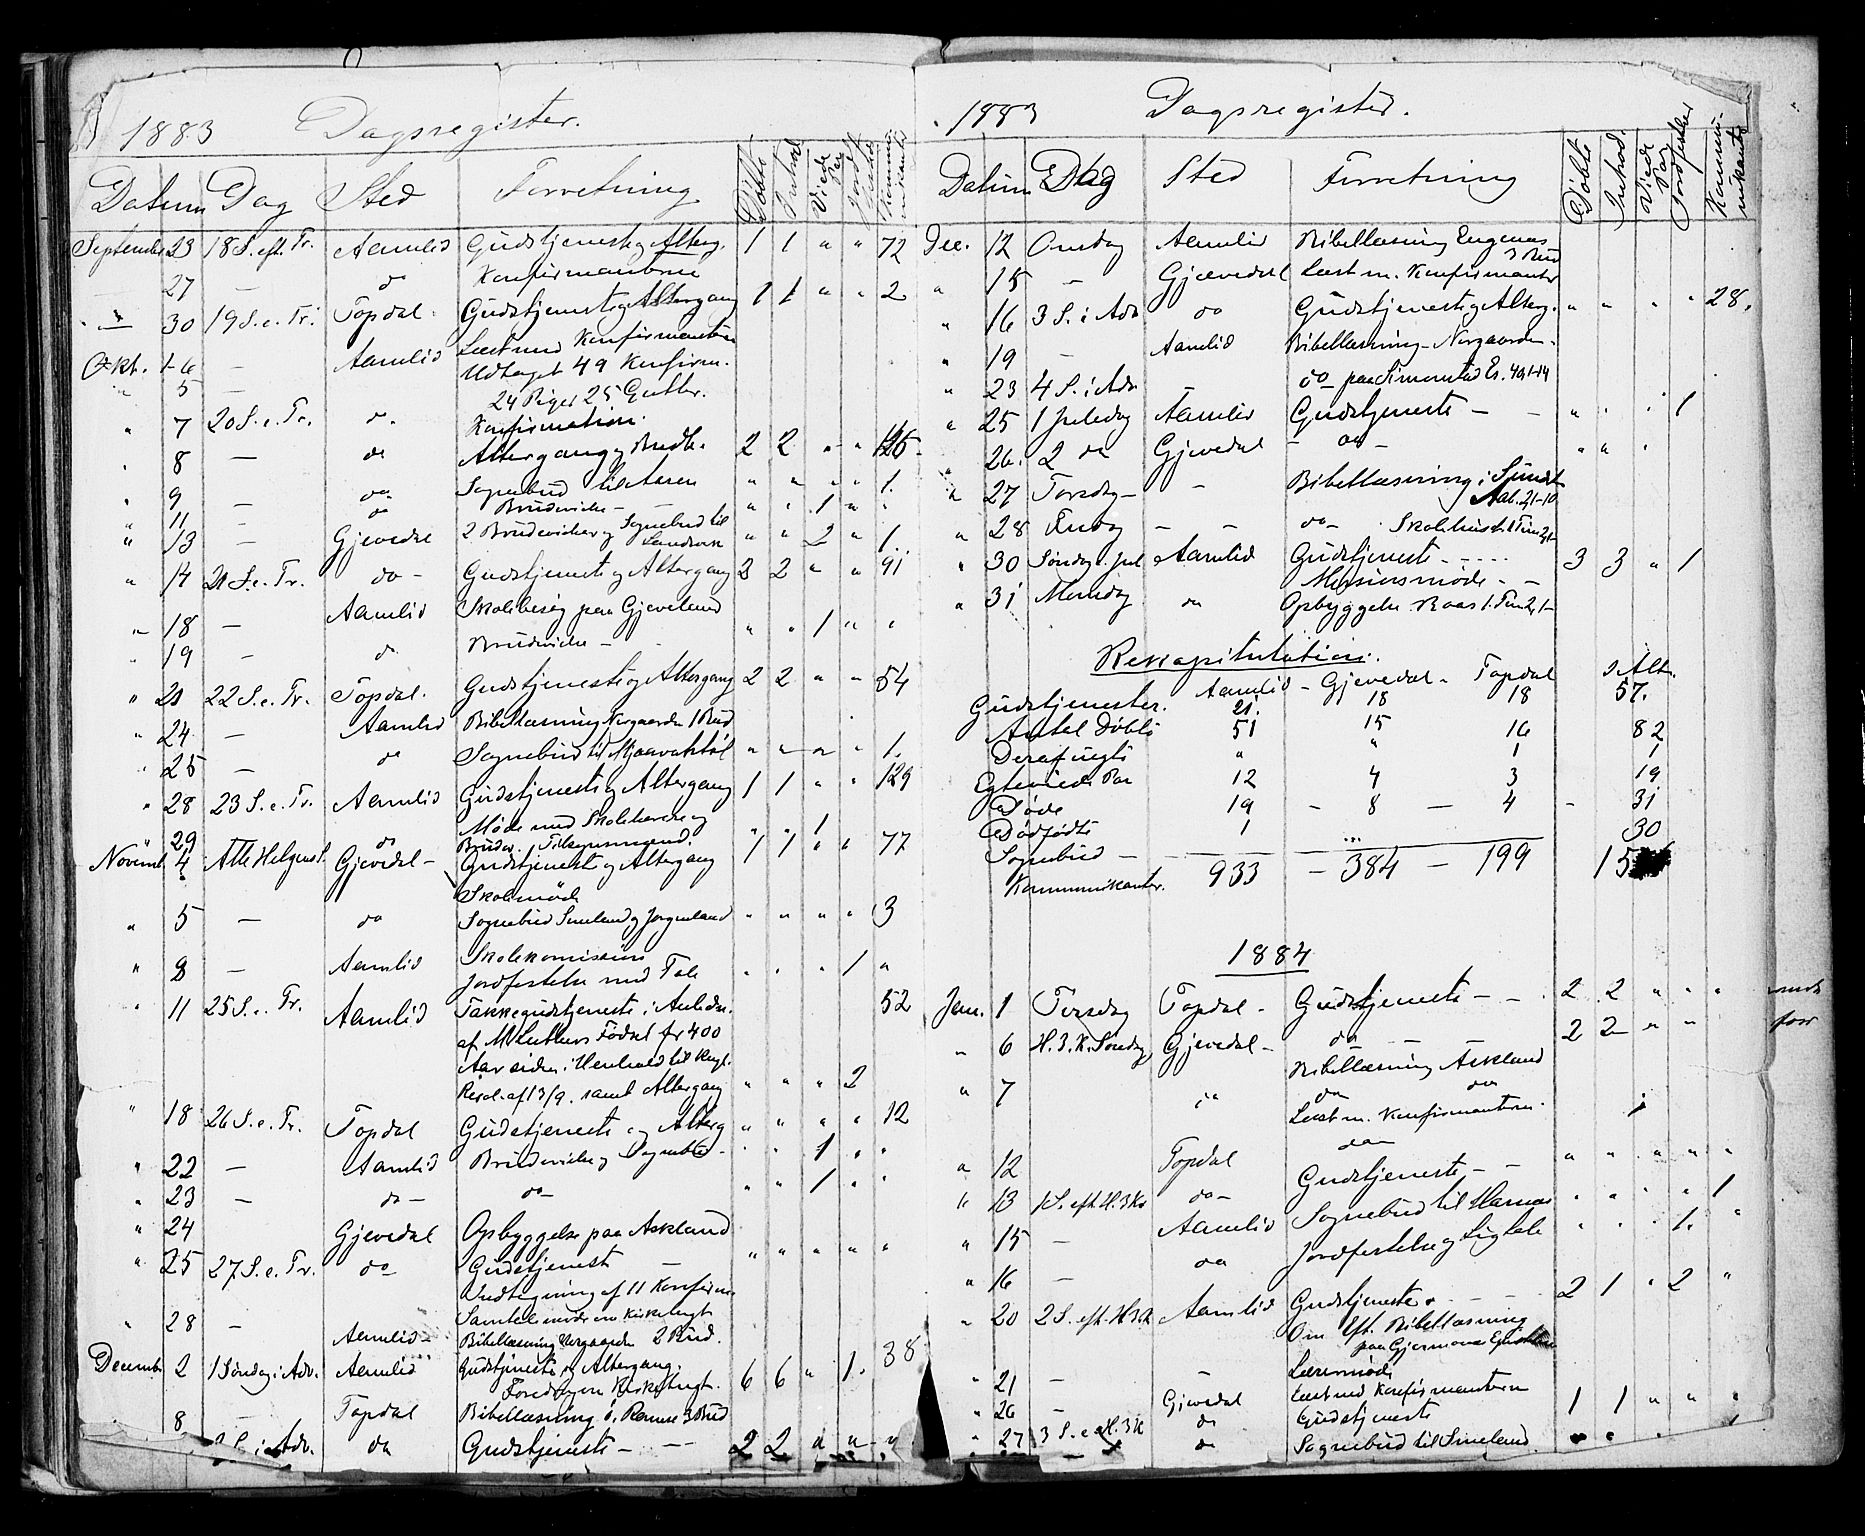 1883 Dagsregister.
Datum Dag Sted Forretning Døbte Introd. Viede Par Kommunikanter
September 23 18 S. eft. Tr. Aamlid Gudstjeneste og Alterg. 1 1 " " 72
27 — do Konfirmanterne
— 30 19 S. e. Tr. Topdal Gudstjeneste og Altergang 1 1 " " 2
Okt. 1-6 — Aamlid Læst med Konfirmanterne
" 5 — Udtaget 49 Konfirm.
24 Piger 25 Gutter.
" 7 20 S. e. Tr. do. Konfirmation.
" 8 — do Altergang og 2 2 " " 125
" 9 — do Sognebud til " " " " 1.
" 11 — do Brudevielse — " " 1 " "
" 13 — Gjevedal 2 Brudevielser og Sognebud til " " 2 " 1.
" 14 21 S. e. Tr. do - Gudstjeneste og Altergang 2 2 " " 91
" 18 — Aamlid Skolebesøg paa Gjeveland
" 19 — do Brudevielse — " " 1 " "
" 21 22 S. e. Tr. Topdal. Gudstjeneste og Altergang 2 2 " " 54
" 24 — Aamlid Bibellæsning Nergaarden 1 Bud
" 25 — do Sognebud til " " " " 1.
" 28 23 S. e. Tr. Aamlid Gudstjeneste og Altergang 1 1 " " 129
29 do Møde med Skolelærere og
Tilsynsmænd. " " 1
Novemb. 4 Alle Helgens f. Gjevedal — Gudstjeneste og Altergang 1 1 " " 77
Skolemøde
" 5 — do Sognebud Smeland og " " " " 3
" 8 — Aamlid Skolekomission
Jordfestelse med Tale " " " 1 "
" 11 25 S. e. Tr. Aamlid Takkegudstjeneste i Anledn. 52
af M Luthers Fødsel for 400
Aar siden i Henhold til Kgl.
Resol. af 13/9. samt Altergang " " " 2
" 18 26 S. e. Tr. Topdal Gudstjeneste og Alterg " " " " 12
" 22 — Aamlid Brudevielse og Sognebud - " " 1 " "
" 23 — do — do " " 1 " "
" 24 Gjevedal Opbyggelse paa Askland
" 25 27 S. e. Tr. do Gudstjenest — " " " " "
Undtagning af 11 Konfirm
" 28 — Samtalemøde om Kirketugt
Aamlid — Bibellæsning Nergaarden 2 Bud.
Decemb. 2 1 Søndag i Adv. Aamlid Gudstjeneste og Altergang. 6 6 " 1. 38
Foredrag om Kirketugt.
8 — Topdal Bibellæsning 3 Bud
S. i Adv. do Gudstjeneste — 2 2 " " "
1883 Dagsregister.
Datum Dag Sted Forretning Døbte Introd. Viede Par Jordfæstelser Kommunikanter
Dec. 12 Onsdag Aamlid Bibellæsning
" 15 — Gjævedal Læst m. Konfirmanter
" 16 3 S. i Adv do Gudstjeneste og Alterg. " " " " 28.
" 19 — Aamlid Bibellæsning — Nergaarden —
" 23 4 S. i Adv — do paa Simonstad Es. 40,1-14
" 25 1 Juledag Aamlid Gudstjeneste — " " " 1
" 26. 2 do Gjevedal — do — " " "
" 27 Torsdag — — Bibellæsning i
Aab. 21-10
" 28 Fredag — — do — Skolehuset
" 30 Søndag e. Jul Aamlid Gudstjeneste 3 3 " 1
Missionsmøde —
" 31 Mandag do Opbyggelse
Rekapitulation.
Aamlid — Gjevedal — Topdal I Alt.
Gudstjenester. 21. 18 18 57.
Antal Døbte 51 15 16 82
Deraf uægte " " 1 1
Egteviede Par 12 4 3 19
Døde 19 — 8 — 4 — 31
Dødfødte 1
Sognebud — 30
Kommunikanter. 933 — 384 — 199 15
1884
Jan. 1 Tirsdag Topdal — Gudstjeneste — 2 2 " " "
" 6 H. 3. K. Søndag Gjevedal — do — 2 2 " "
Bibellæsning Askland
" 7 do do
Læst m. Konfirmanterne.
" 12 Topdal do
" 13 1 S. eft. H. 3 K. do — Gudstjeneste — — " " " " "
" 15 — Aamlid Sognebud til " " " " 1
" 16 — do Jordfestelse og Ligtale " " " 1. "
" 20 2 S. eft. H3K Aamlid Gudstjeneste 2 1 " 2 "
Om Eft. Bibellæsning
paa
" 21 — Lærermøde
" 26 — Gjevedal Læst med Konfirmanterne
" 27 3 S. e. H. 3 K do Gudstjeneste 1 1 " " "
do Sognebud til Smeland